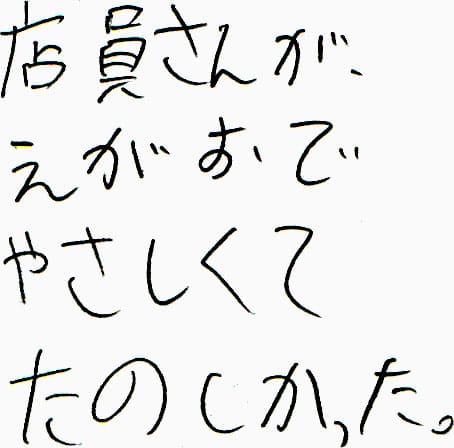 店員さんが、
えがおで
やさしくて
たのしかった。